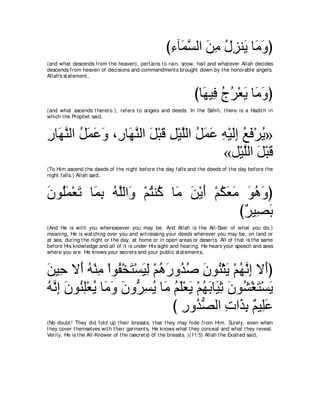 (وَمَا يَنزِلُ مِنَ السَّمَآءِ)
(and what descends from the heaven), pertains to rain, snow, hail and whatever Allah decides
descends from heaven of decisions and commandments brought down by the honorable angels.
Allah's statement,
(وَمَا يَعْرُجُ فِيهَا)
(and what ascends thereto.), refers to angels and deeds. In the Sahih, there is a Hadith in
which the Prophet said,
«يُرْفَعُ إِلَيْهِ عَمَلُ اللَّيْلِ قَبْلَ النَّهَارِ، وَعَمَلُ النَّهَارِ
قَبْلَ اللَّيْلِ»
(To Him ascend the deeds of the night before the day falls and the deeds of the day before the
night falls.) Allah said,
(وَهُوَ مَعَكُمْ أَيْنَ مَا كُنتُمْ وَاللَّهُ بِمَا تَعْمَلُونَ
بَصِيرٌ)
(And He is with you wheresoever you may be. And Allah is the All-Seer of what you do.)
meaning, He is watching over you and witnessing your deeds wherever you may be, on land or
at sea, during the night or the day, at home or in open areas or deserts. All of that is the same
before His knowledge and all of it is under His sight and hearing. He hears your speech and sees
where you are. He knows your secrets and your public statements,
(أَلا إِنَّهُمْ يَثْنُونَ صُدُورَهُمْ لِيَسْتَخْفُواْ مِنْهُ أَلا حِينَ
يَسْتَغْشُونَ ثِيَابَهُمْ يَعْلَمُ مَا يُسِرُّونَ وَمَا يُعْلِنُونَ إِنَّهُ
عَلِيمٌ بِذَاتِ الصُّدُورِ )
(No doubt! They did fold up their breasts, that they may hide from Him. Surely, even when
they cover themselves with their garments, He knows what they conceal and what they reveal.
Verily, He is the All-Knower of the (secrets) of the breasts. )(11:5) Allah the Exalted said,